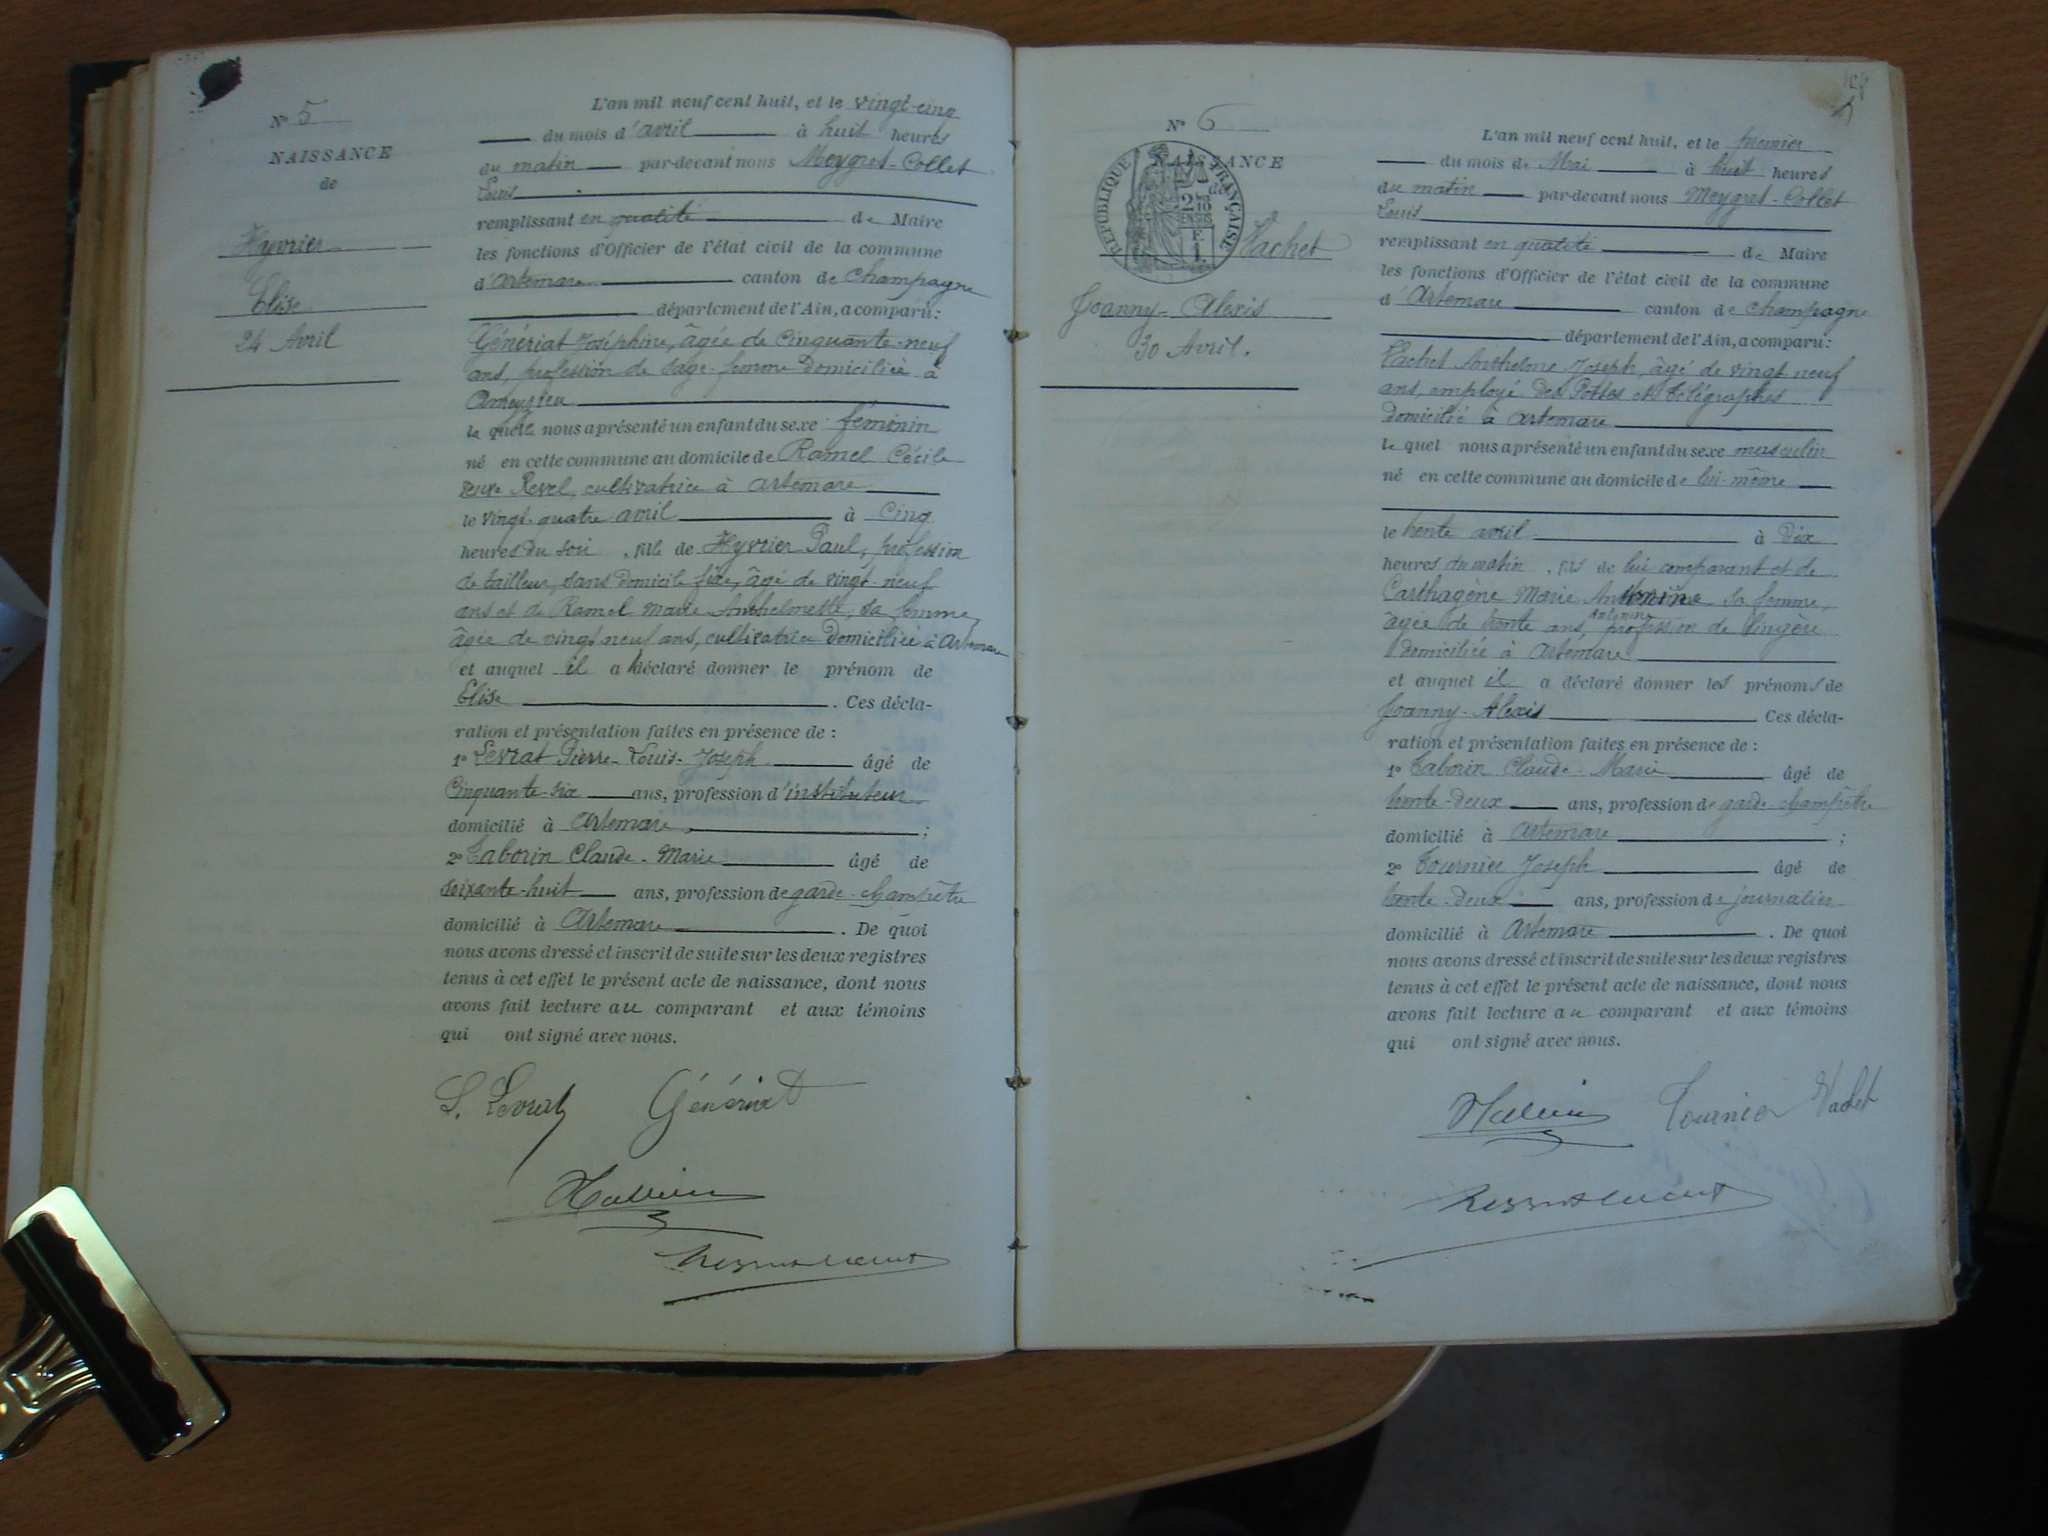 N° 5
NAISSANCE
de
Hyvrier
Élise
24 Avril
L'an mil neuf cent huit, et le vingt-cinq
du mois d'avril à huit heures
du matin par-devant nous Meygret-Collet
Louis
remplissant en qualité de Maire
les fonctions d'Officier de l'état civil de la commune
d'Artemare canton de Champagne
département de l'Ain, a comparu :
Génériat Joséphine, âgée de cinquante-neuf
ans, profession de sage-femme domiciliée à
Ameyzieu
la quelle nous a présenté un enfant du sexe féminin
né en cette commune au domicile de Ramel Cécile
veuve Revel, cultivatrice à Artemare
le vingt-quatre avril à cinq
heures du soir, fille de Hyvrier Paul, profession
de tailleur, sans domicile fixe, âgé de vingt-neuf
ans et de Ramel Marie Anthelmette, sa femme,
âgée de vingt neuf ans, cultivatrice domiciliée à Artemare
et auquel il a déclaré donner le prénom de
Élise . Ces décla-
ration et présentation faites en présence de :
1° Levrat Pierre-Louis-Joseph âgé de
cinquante-six ans, profession d'instituteur
domicilié à Artemare ;
2° Taborin Claude-Marie âgé de
soixante-huit ans, profession de garde-champêtre
domicilié à Artemare . De quoi
nous avons dressé et inscrit de suite sur les deux registres
tenus à cet effet le présent acte de naissance, dont nous
avons fait lecture au comparant et aux témoins
qui ont signé avec nous.
L. Levrat Génériat
N° 6
NAISSANCE
de
RÉPUBLIQUE FRANÇAISE
Vachet
Joanny-Alexis
30 Avril.
L'an mil neuf cent huit, et le premier
du mois de Mai à huit heures
du matin par-devant nous Meygret-Collet
Louis
remplissant en qualité de Maire
les fonctions d'Officier de l'état civil de la commune
d'Artemare canton de Champagne
département de l'Ain, a comparu :
Vachet Anthelme Joseph, âgé de vingt neuf
ans, employé des Postes et Télégraphes
domicilié à Artemare
le quel nous a présenté un enfant du sexe masculin
né en cette commune au domicile de lui-même
le trente avril à dix
heures du matin, fils de lui comparant et de
Carthagène Marie Antonine sa femme,
âgée de trente ans, profession de lingère
domiciliée à Artemare
et auquel il a déclaré donner les prénoms de
Joanny-Alexis Ces décla-
ration et présentation faites en présence de :
1° Taborin Claude-Marie âgé de
trente-deux ans, profession de garde-champêtre
domicilié à Artemare ;
2° Tournier Joseph âgé de
trente-deux ans, profession de journalier
domicilié à Artemare . De quoi
nous avons dressé et inscrit de suite sur les deux registres
tenus à cet effet le présent acte de naissance, dont nous
avons fait lecture au comparant et aux témoins
qui ont signé avec nous.
Tournier Vachet